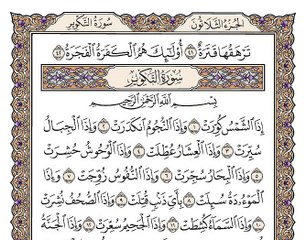 سورة التكوير
الجزء الثلاثون
تَرْهَقُهَا قَتَرَةٌ ٤١ أُوْلَٰٓئِكَ هُمُ ٱلْكَفَرَةُ ٱلْفَجَرَةُ ٤٢
سورة التكوير
بِسْمِ ٱللَّهِ ٱلرَّحْمَٰنِ ٱلرَّحِيمِ
إِذَا ٱلشَّمْسُ كُوِّرَتْ ١ وَإِذَا ٱلنُّجُومُ ٱنكَدَرَتْ ٢ وَإِذَا ٱلْجِبَالُ
سُيِّرَتْ ٣ وَإِذَا ٱلْعِشَارُ عُطِّلَتْ ٤ وَإِذَا ٱلْوُحُوشُ حُشِرَتْ
٥ وَإِذَا ٱلْبِحَارُ سُجِّرَتْ ٦ وَإِذَا ٱلنُّفُوسُ زُوِّجَتْ ٧ وَإِذَا
ٱلْمَوْءُۥدَةُ سُئِلَتْ ٨ بِأَيِّ ذَنۢبٍ قُتِلَتْ ٩ وَإِذَا ٱلصُّحُفُ نُشِرَتْ
١٠ وَإِذَا ٱلسَّمَآءُ كُشِطَتْ ١١ وَإِذَا ٱلْجَحِيمُ سُعِّرَتْ ١٢ وَإِذَا ٱلْجَنَّةُ